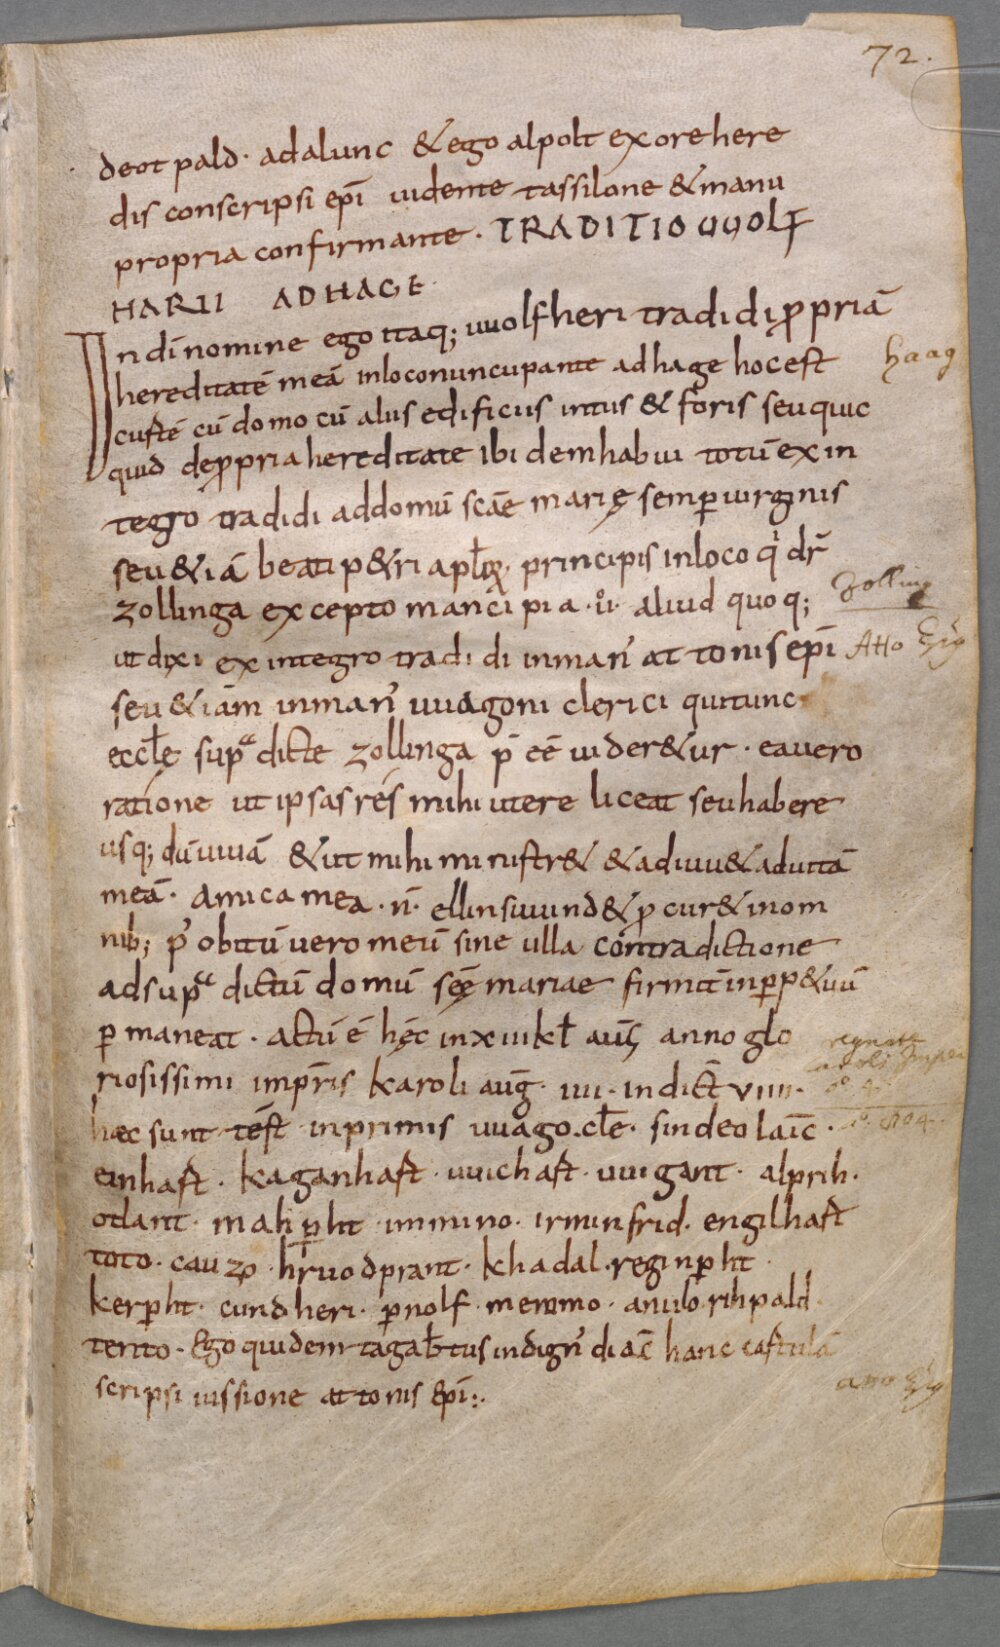 72.
deot pald · adalunc & ego alpolt ex ore here
dis conscripsi ep̄i uidente tassilone & manu
propria confirmante · TRADITIO UUOLF
HARII AD HAGE ·
In dī nomine ego itaq; uuolfheri tradidi ꝓpriā
hereditatē meā in loco nuncupante ad hage hoc est
haag
custē cū domo cū aliis edificiis intus & foris seu quic
quid de ꝓpria hereditate ibidem habui totū ex in
tegro tradidi ad domū sc̄ae marię semꝑ uirginis
seu &iā beati p&ri apl̄oꝝ · principis in loco qͥ dr̄
zollinga excepto mancipia · ui · aliud quoq;
Zolling
ut dixi ex integro tradidi in man̄ attonis ep̄i
Atto
seu &iam in man̄ uuagoni clerici qui tunc
eccl̄e supᵃ dicte zollinga p̄ eē uider&ur · ea uero
ratione ut ipsas res mihi utere liceat seu habere
usq; dū uiuā & ut mihi ministr& & adiuu& ad uitā
meā · amica mea · n̄ · ellinsuuind & ꝓcur& in om
nib; p̄ obitū uero meū sine ulla contradictione
ad supᵃ dictū domū sc̄ę mariae firmit̄ in ꝑp&uū
ꝑmaneat · actū ē hęc in xuii kl̄ auḡ anno glo
riosissimi imp̄ris karoli auḡ · iiii · indict̄ viiii ·
haec sunt test̄ · inprimis uuago · cl̄e · sindeo laic̄ ·
einhaft · kaganhaft · uuichaft · uuigant · alprih ·
otlant · mahꝑht · immino · irminfrid · engilhaft
toto · cauzo · hruodprant · khadal · reginꝑht
kerꝑht · cundheri · ꝑnolf · memmo · anulo · rihpald ·
tento · Ego quidem tagab̄tus indign̄ diac̄ hanc castulā
scripsi iussione attonis ep̄i :·